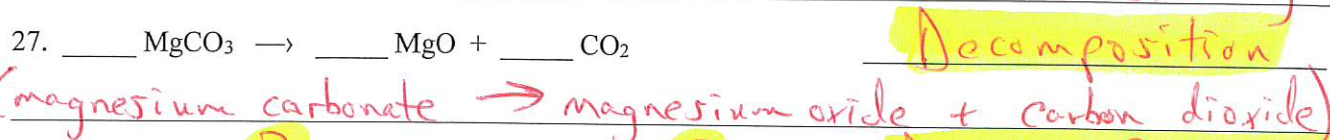 27. _____ MgCO₃ → _____ MgO + _____ CO₂ Decomposition
(magnesium carbonate → magnesium oxide + carbon dioxide)